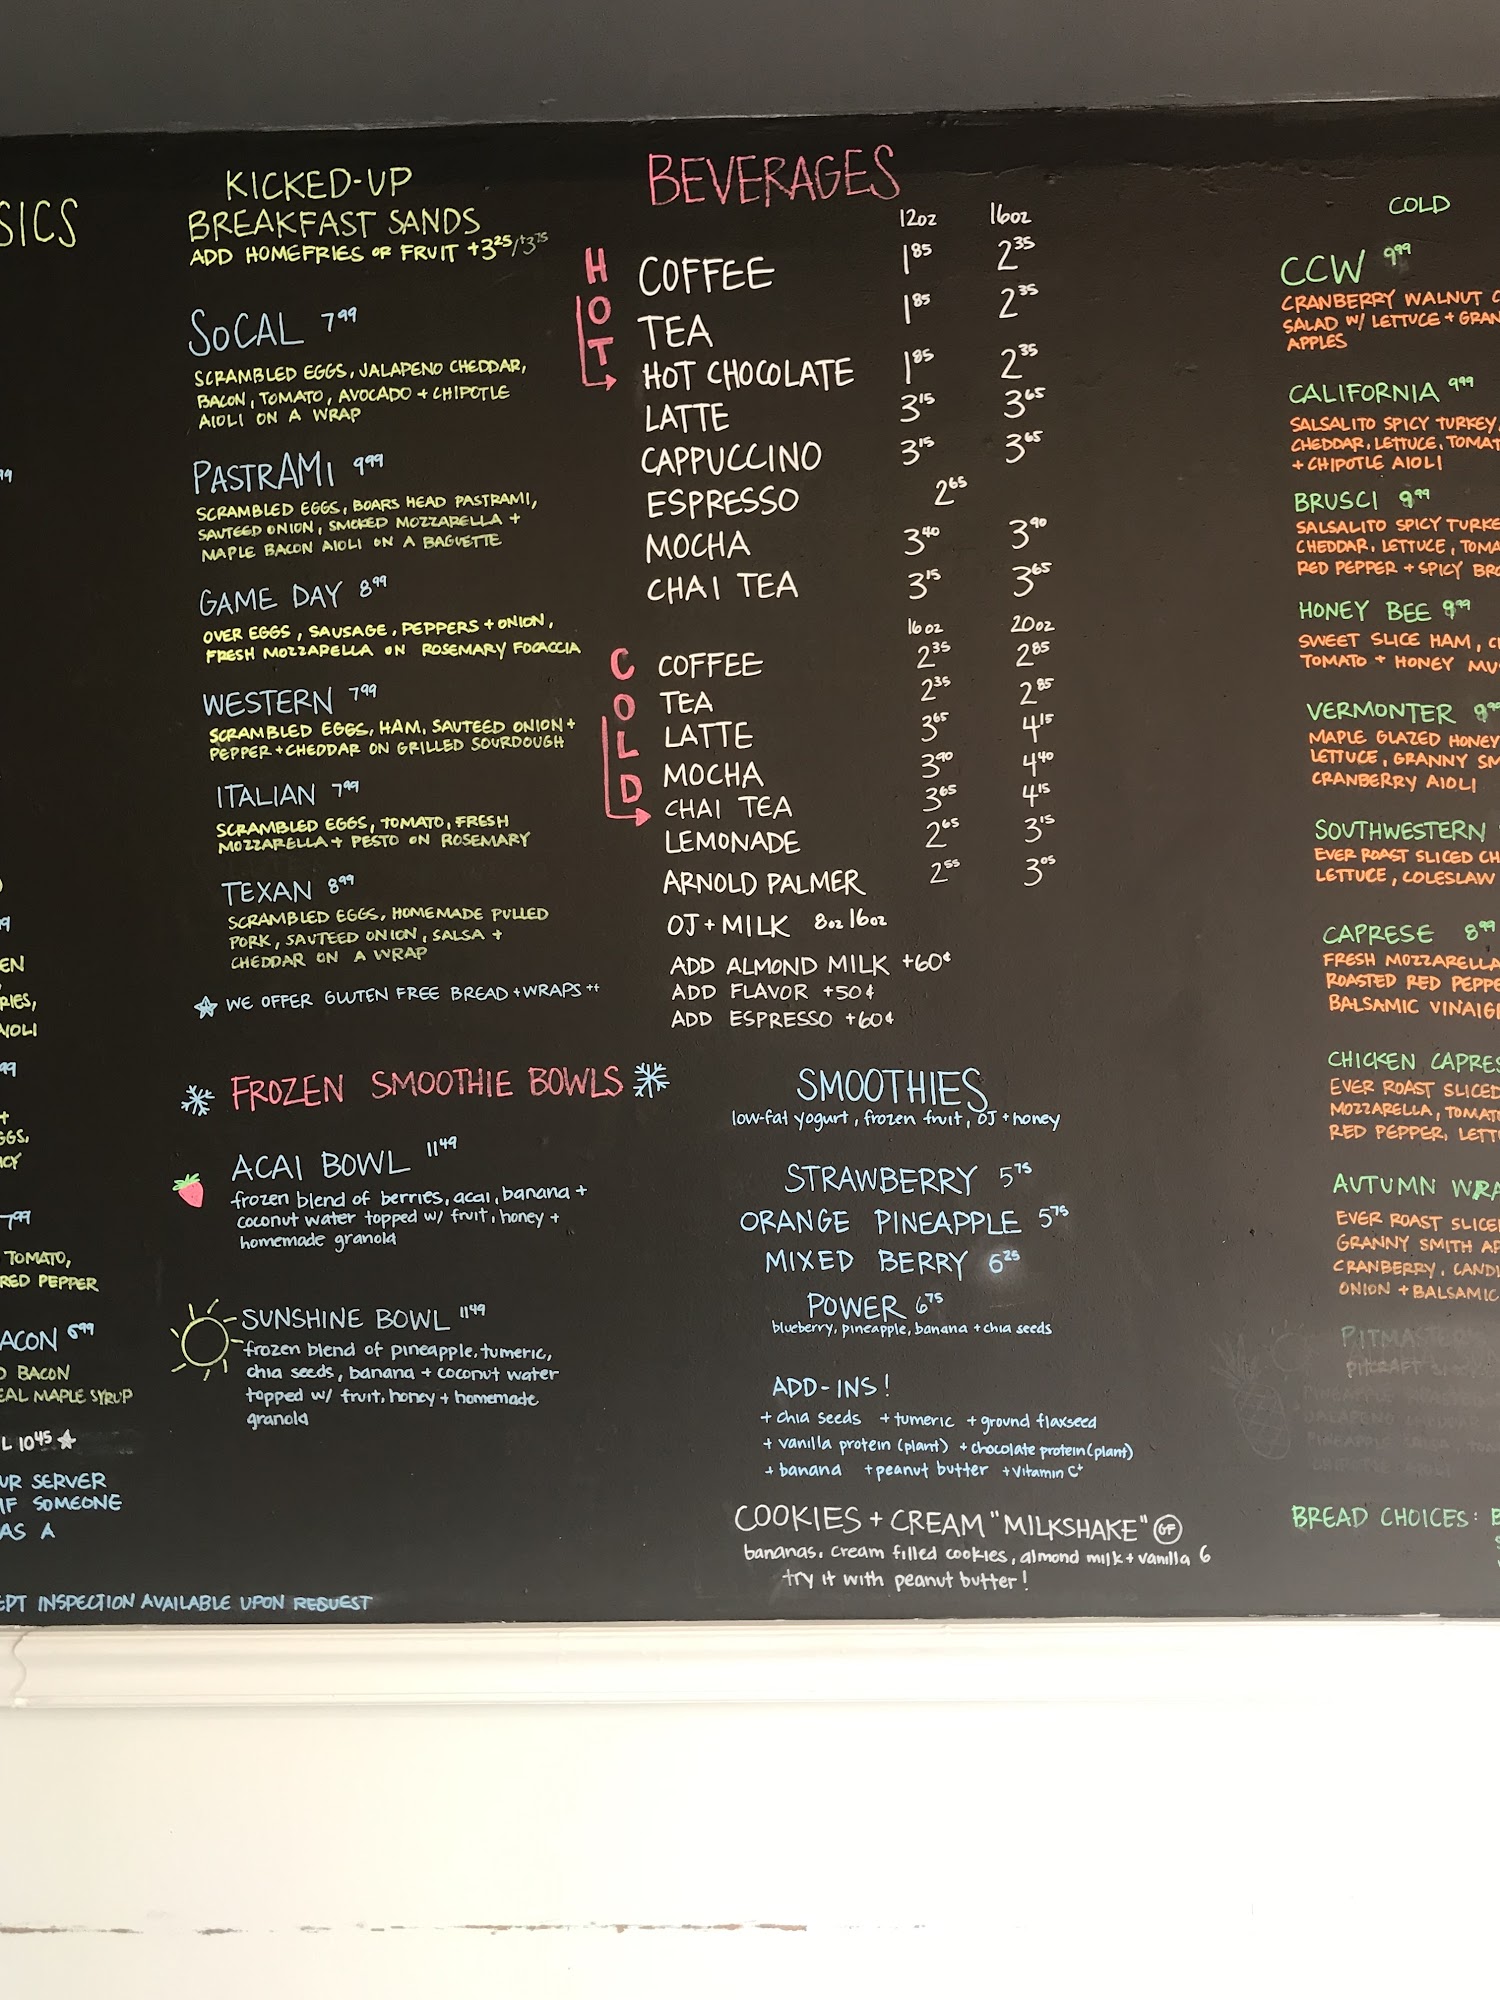 SICS
99
9
EN
RIES,
AIOLI
99
+
GGS,
ICY
7.99
TOMATO,
RED PEPPER
ACON 6.99
D BACON
EAL MAPLE SYRUP
L 10.45
UR SERVER
IF SOMEONE
AS A
EPT INSPECTION AVAILABLE UPON REQUEST
KICKED-UP
BREAKFAST SANDS
ADD HOMEFRIES OR FRUIT +3.25/+3.75
SOCAL 7.99
SCRAMBLED EGGS, JALAPENO CHEDDAR,
BACON, TOMATO, AVOCADO + CHIPOTLE
AIOLI ON A WRAP
PASTRAMI 9.99
SCRAMBLED EGGS, BOARS HEAD PASTRAMI,
SAUTEED ONION, SMOKED MOZZARELLA +
MAPLE BACON AIOLI ON A BAGUETTE
GAME DAY 8.99
OVER EGGS, SAUSAGE, PEPPERS + ONION,
FRESH MOZZARELLA ON ROSEMARY FOCACCIA
WESTERN 7.99
SCRAMBLED EGGS, HAM, SAUTEED ONION +
PEPPER + CHEDDAR ON GRILLED SOURDOUGH
ITALIAN 7.99
SCRAMBLED EGGS, TOMATO, FRESH
MOZZARELLA + PESTO ON ROSEMARY
TEXAN 8.99
SCRAMBLED EGGS, HOMEMADE PULLED
PORK, SAUTEED ONION, SALSA +
CHEDDAR ON A WRAP
WE OFFER GLUTEN FREE BREAD + WRAPS ++
FROZEN SMOOTHIE BOWLS
ACAI BOWL 11.49
frozen blend of berries, acai, banana +
coconut water topped w/ fruit, honey +
homemade granola
SUNSHINE BOWL 11.49
frozen blend of pineapple, tumeric,
chia seeds, banana + coconut water
topped w/ fruit, honey + homemade
granola
BEVERAGES
12oz 16oz
HOT
COFFEE 1.85 2.35
TEA 1.85 2.35
HOT CHOCOLATE 1.85 2.35
LATTE 3.15 3.65
CAPPUCCINO 3.15 3.65
ESPRESSO 2.65
MOCHA 3.40 3.90
CHAI TEA 3.15 3.65
16oz 20oz
COLD
COFFEE 2.35 2.85
TEA 2.35 2.85
LATTE 3.65 4.15
MOCHA 3.90 4.40
CHAI TEA 3.65 4.15
LEMONADE 2.65 3.15
ARNOLD PALMER 2.55 3.05
OJ + MILK 8oz 16oz
ADD ALMOND MILK +60¢
ADD FLAVOR +50¢
ADD ESPRESSO +60¢
SMOOTHIES
low-fat yogurt, frozen fruit, OJ + honey
STRAWBERRY 5.75
ORANGE PINEAPPLE 5.75
MIXED BERRY 6.25
POWER 6.75
blueberry, pineapple, banana + chia seeds
ADD-INS!
+ chia seeds + tumeric + ground flaxseed
+ vanilla protein (plant) + chocolate protein (plant)
+ banana + peanut butter + vitamin C+
COOKIES + CREAM "MILKSHAKE" GF
bananas, cream filled cookies, almond milk + vanilla 6
try it with peanut butter!
COLD
CCW 9.99
CRANBERRY WALNUT C
SALAD W/ LETTUCE + GRAN
APPLES
CALIFORNIA 9.99
SALSALITO SPICY TURKEY,
CHEDDAR, LETTUCE, TOMAT
+ CHIPOTLE AIOLI
BRUSCI 9.99
SALSALITO SPICY TURKE
CHEDDAR, LETTUCE, TOMA
RED PEPPER + SPICY BRO
HONEY BEE 9.99
SWEET SLICE HAM, CH
TOMATO + HONEY MU
VERMONTER 9.99
MAPLE GLAZED HONEY
LETTUCE, GRANNY SM
CRANBERRY AIOLI
SOUTHWESTERN
EVER ROAST SLICED CH
LETTUCE, COLESLAW
CAPRESE 8.99
FRESH MOZZARELLA
ROASTED RED PEPPE
BALSAMIC VINAIG
CHICKEN CAPRES
EVER ROAST SLICED
MOZZARELLA, TOMAT
RED PEPPER, LETT
AUTUMN WRA
EVER ROAST SLICE
GRANNY SMITH AP
CRANBERRY, CANDI
ONION + BALSAMIC
BREAD CHOICES: B